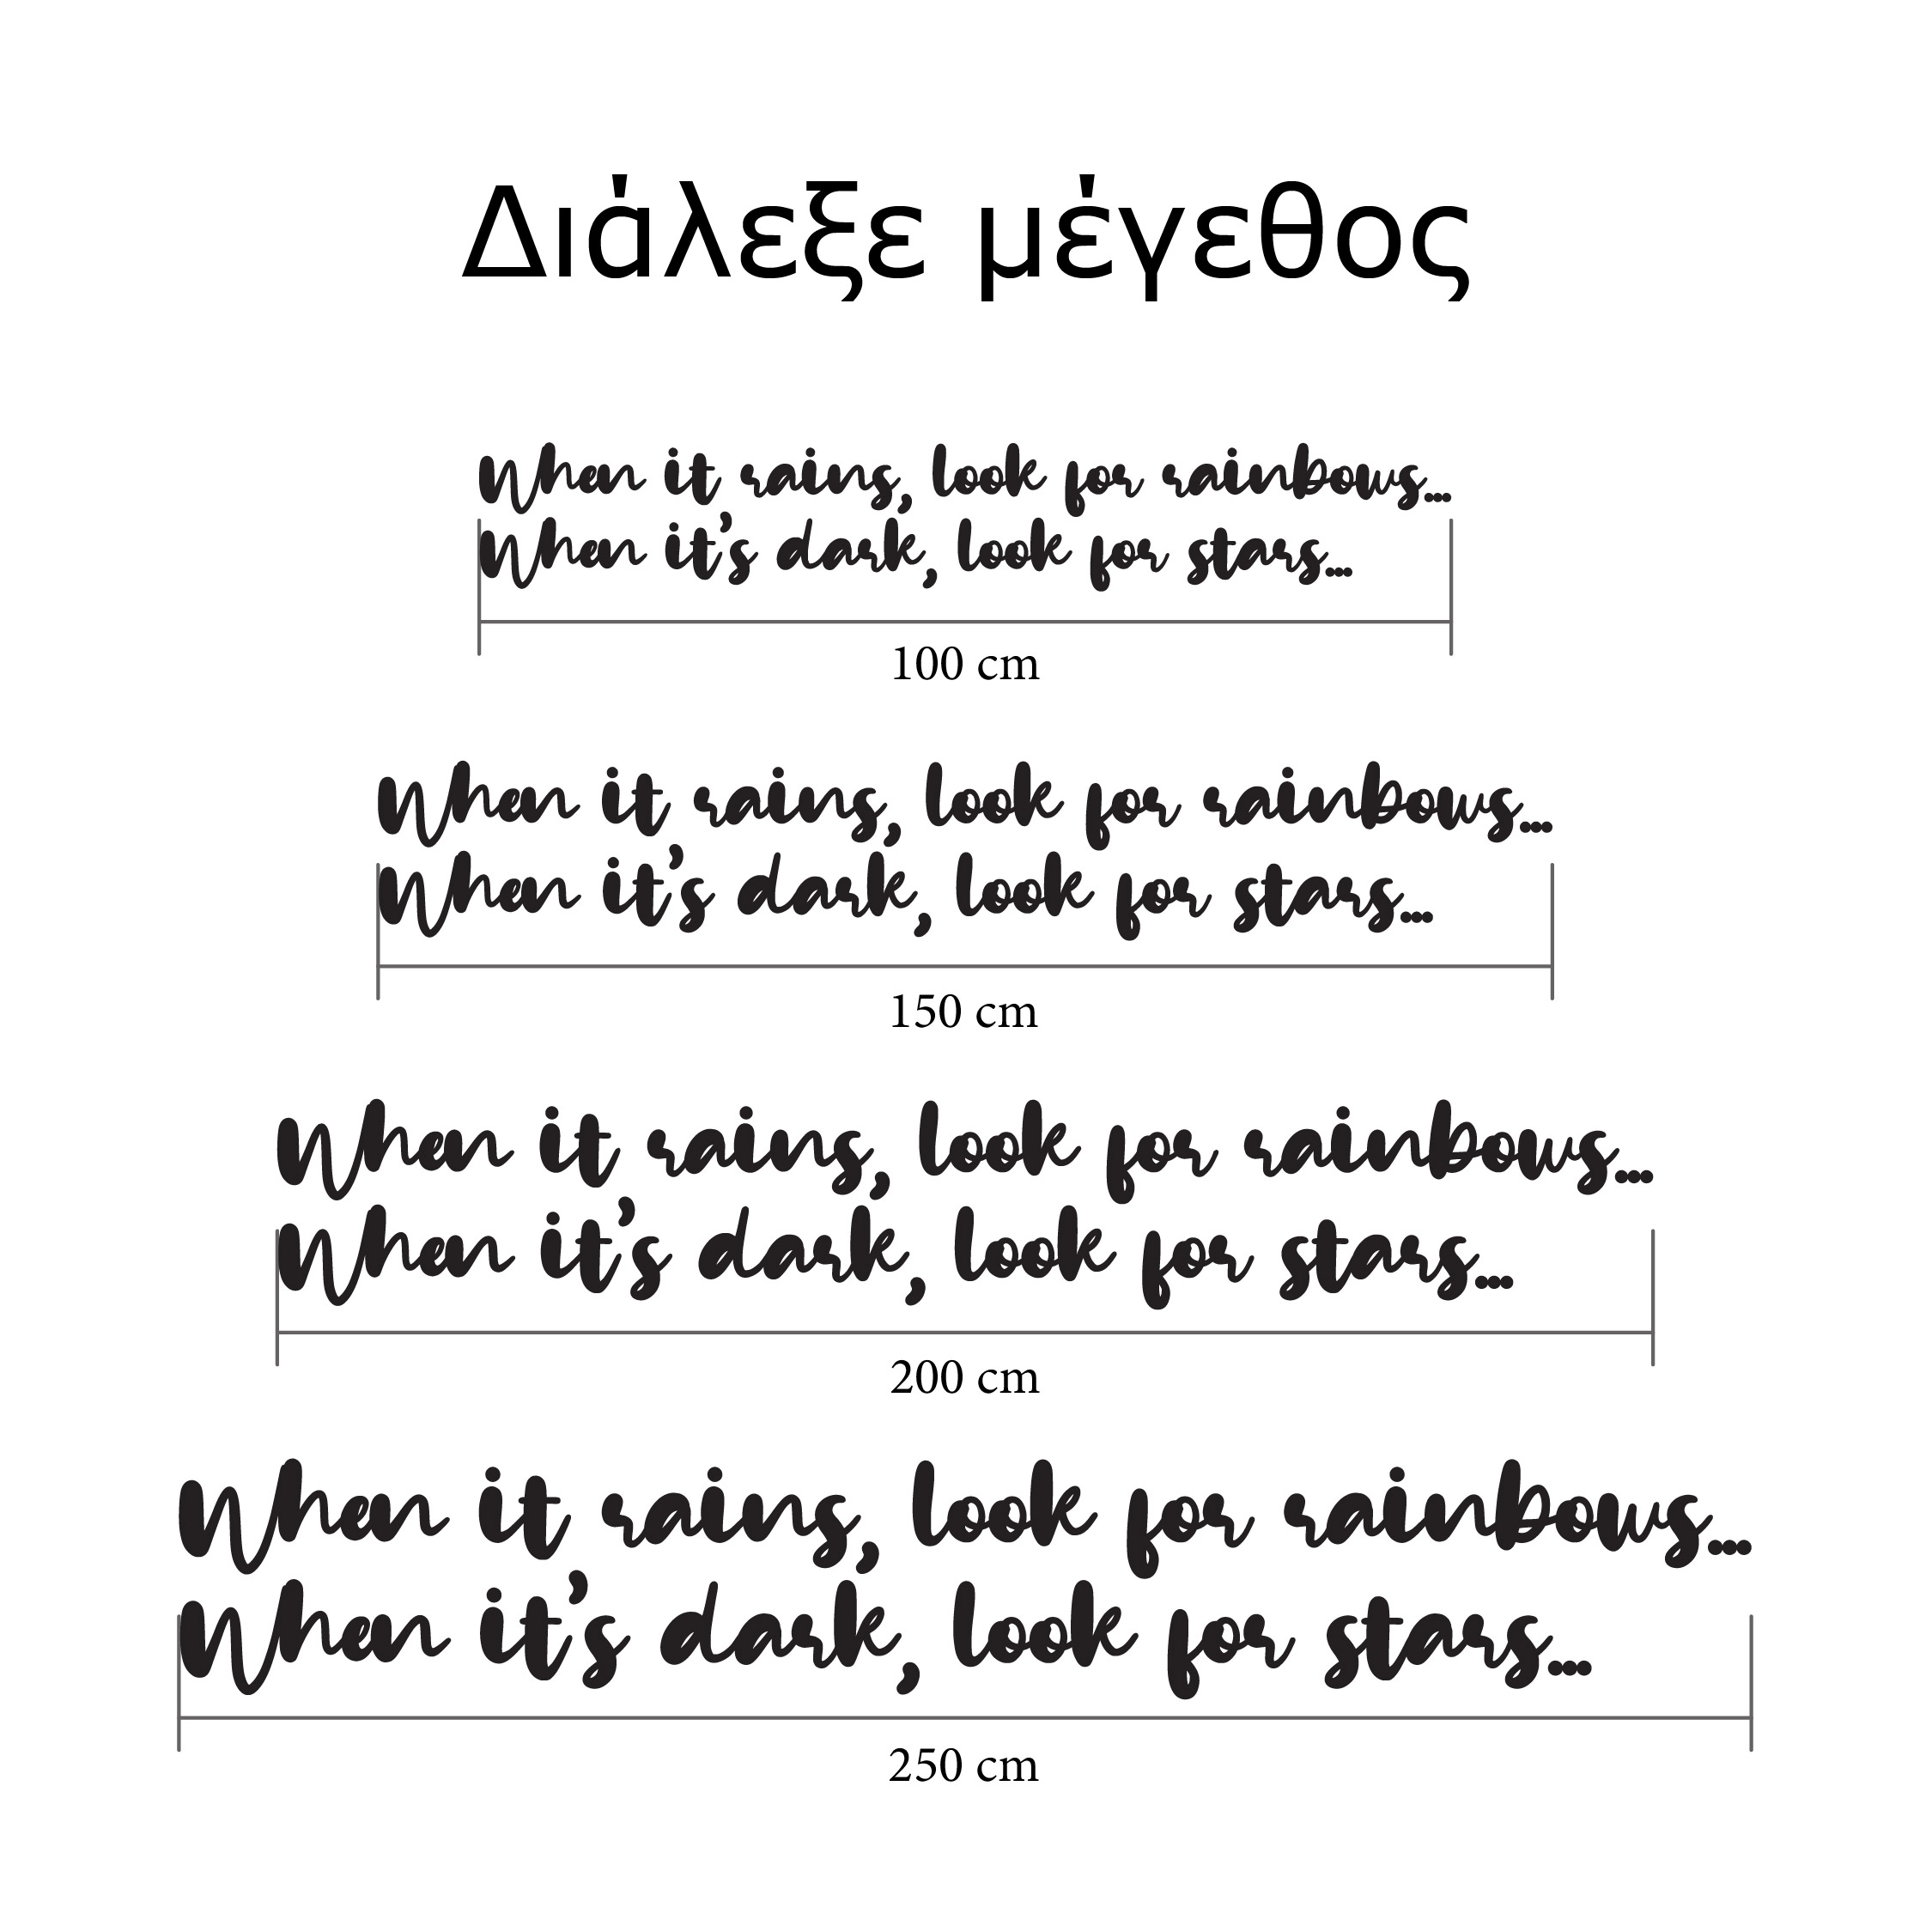 Διάλεξε μέγεθος
When it rains, look for rainbows...
When it's dark, look for stars...
100 cm
When it rains, look for rainbows...
When it's dark, look for stars...
150 cm
When it rains, look for rainbows...
When it's dark, look for stars...
200 cm
When it rains, look for rainbows...
When it's dark, look for stars...
250 cm